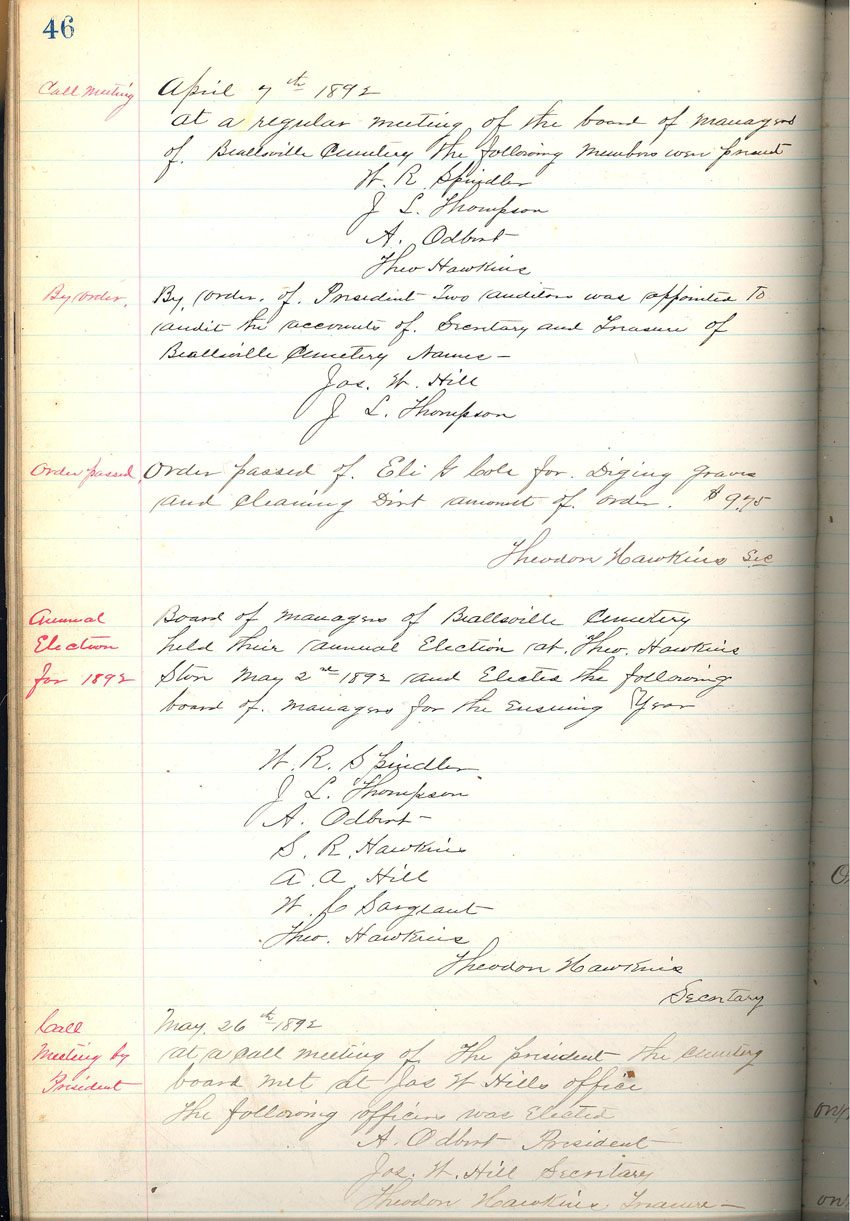 46
Call Meeting
April 7th 1892
at a regular meeting of the board of managers
of Beallsville Cemetery the following members were present
W. R. Spindler
J L. Thompson
A. Odbert
Theo Hawkins
By order.
By order. of. President Two auditors was appointed To
audit the accounts of. Secretary and Treasure of
Beallsville Cemetery Names —
Jas. W. Hill
J L. Thompson
Order passed,
Order passed of. Eli G Cole for. Diging graves
and cleaning Dirt amount of. order. $ 9.75
Theodore Hawkins Sec
Annual
Election
for 1892
Board of managers of Beallsville Cemetery
held their annual Election at. Theo. Hawkins
Store May 2nd 1892 and Elected the following
board of. managers for the Ensuing Year
W. R. Spindler
J L. Thompson
A. Odbert —
S. R. Hawkins
A. A. Hill
W. C Sargeant
Theo. Hawkins
Theodore Hawkins
Secretary
Call
Meeting by
President
May. 26th 1892
at a call meeting of The president the cemetery
board met at Jas W Hills office
The following officers was Elected
A. Odbert President
Jas. W. Hill Secretary
Theodore Hawkins. Treasure —